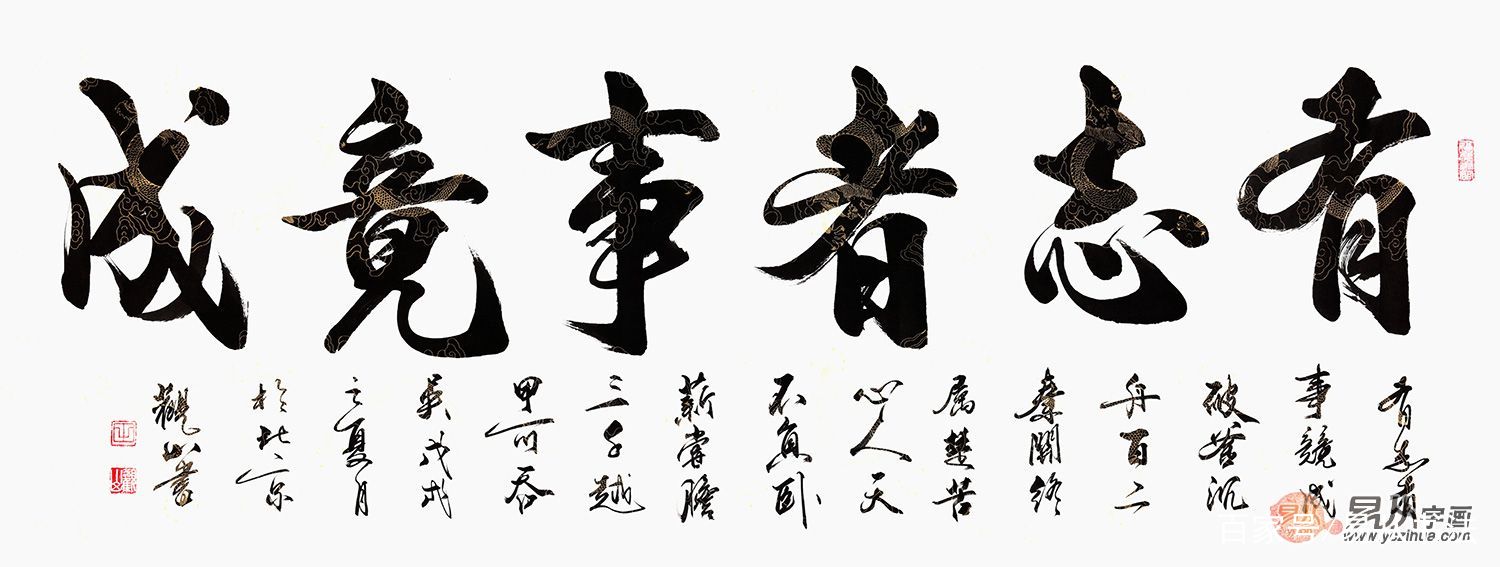 有志者事竟成
有志者
事競成
破釜沉
舟百二
秦關終
属楚苦
心人天
不負卧
薪嘗膽
三千越
甲可吞
吳戊戌
之夏月
於北京
觀山書
易从字画
www.yczihua.com
百家号/易从